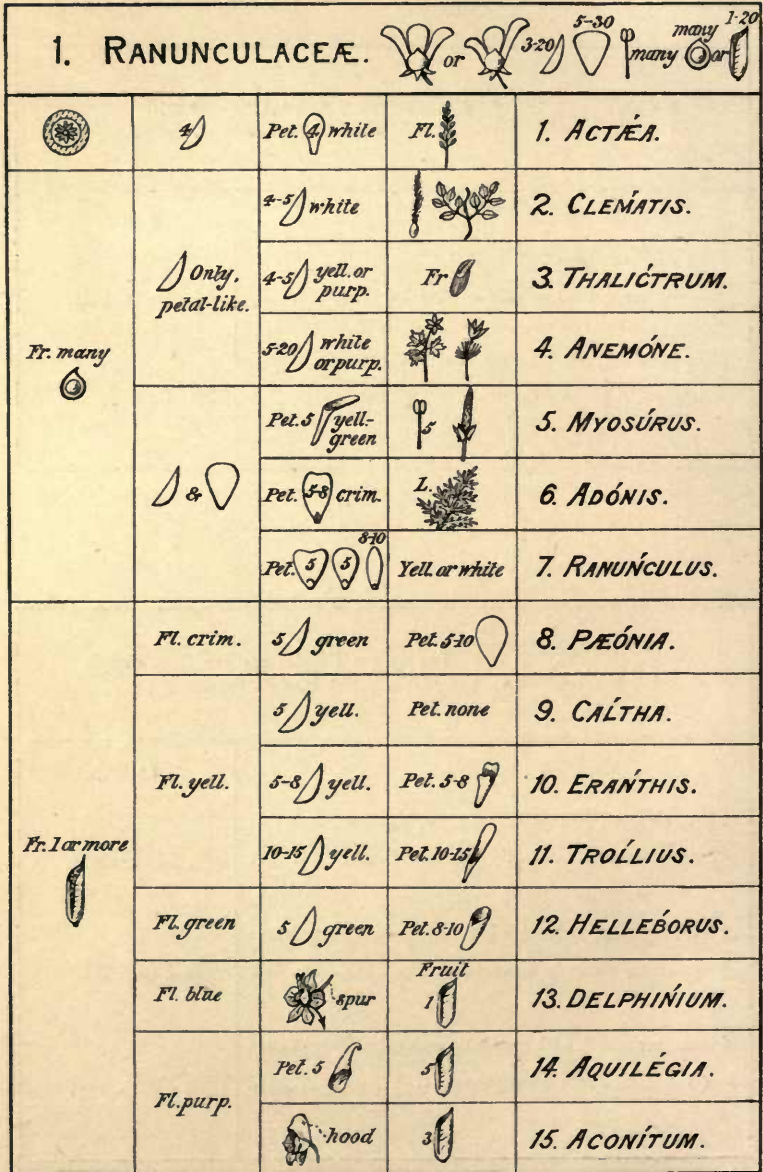 1. RANUNCULACEÆ. or 3-20 5-30 many many or 1-20
4 Pet. 4 white Fl. 1. ACTǼA.
Fr. many
Only. petal-like.
4-5 white 2. CLEḾATIS.
4-5 yell. or purp. Fr 3. THALIĆTRUM.
5-20 white or purp. 4. ANEMÓNE.
&
Pet. 5 yell.-green 5 5. MYOSÚRUS.
Pet. 5-8 crim. L. 6. ADÓNIS.
Pet. 5 5 8-10 Yell. or white 7. RANUŃCULUS.
Fr. 1 or more
Fl. crim. 5 green Pet. 5-10 8. PÆÓNIA.
Fl. yell.
5 yell. Pet. none 9. CAĹTHA.
5-8 yell. Pet. 5-8 10. ERAŃTHIS.
10-15 yell. Pet. 10-15 11. TROĹLIUS.
Fl. green 5 green Pet. 8-10 12. HELLEB́ORUS.
Fl. blue spur Fruit 1 13. DELPHIŃIUM.
Fl. purp.
Pet. 5 5 14. AQUILÉGIA.
hood 3 15. ACONÍTUM.